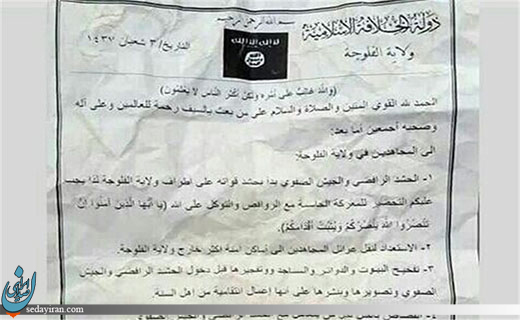 بسم الله الرحمن الرحيم
دولة الخلافة الاسلامية
ولاية الفلوجة
التاريخ/ ٣ شعبان ١٤٣٧
(والله غالب على أمره ولكن أكثر الناس لا يعلمون)
الحمد لله القوي المتين والصلاة والسلام على من بعث بالسيف رحمة للعالمين وعلى آله
وصحبه أجمعين أما بعد:
الى المجاهدين في ولاية الفلوجة:
١- الحشد الرافضي والجيش الصفوي بدأ بحشد قواته على اطراف ولاية الفلوجة لذا يجب
عليكم التحضير للمعركة الحاسة مع الروافض والتوكل على الله (يا أيها الذين آمنوا إن
تنصروا الله ينصركم ويثبت أقدامكم).
٢- الاستعداد لنقل عوائل المجاهدين الى أماكن آمنة اكثر خارج ولاية الفلوجة.
٣- تفخيخ البيوت والدوائر والمساجد وتفجيرها قبل دخول الحشد الرافضي والجيش
الصفوي وتصويرها ونشرها على أنها أعمال انتقامية من اهل السنة.
٤- القصاص
sedayiran.com